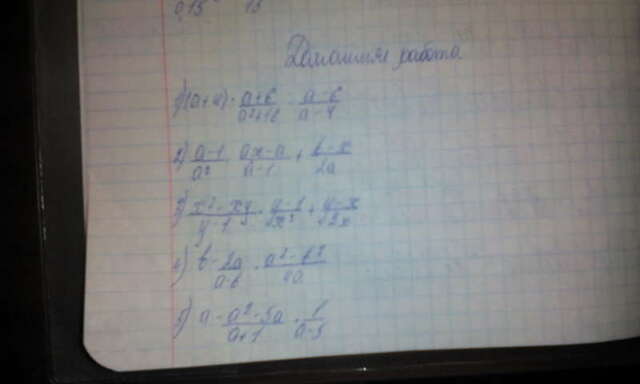 0,15 15
Домашняя работа
1) (a+4) · a+b/a²+12 - a-b/a-4
2) a-1/a² · ax-a/a-1 + b-x/2a
3) x²-xy/y-1 · y-1/x² + y-x/2x
4) b - 2a/a-b · a²-b²/4a
5) a - a²-5a/a+1 · 1/a-5